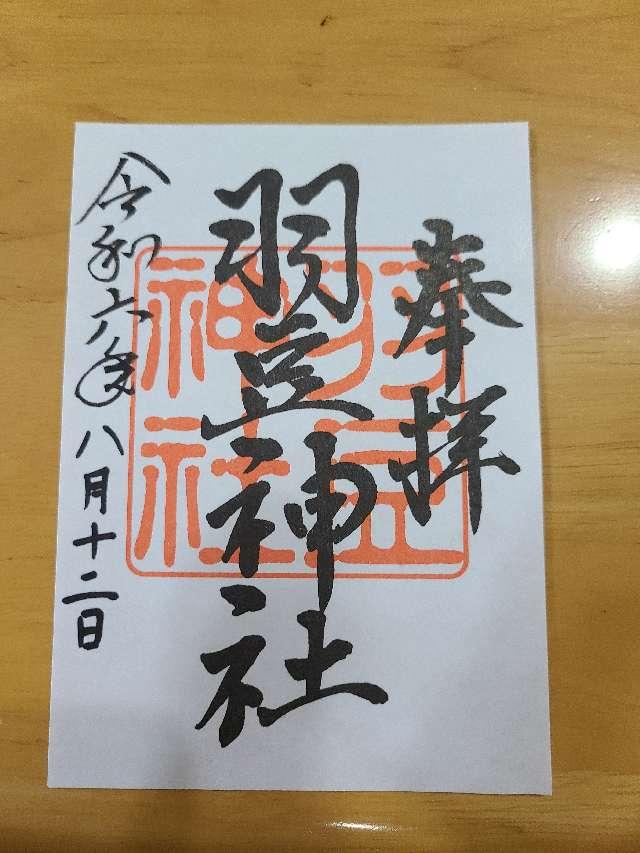 奉拝
羽豆神社
羽豆神社
令和六年八月十二日